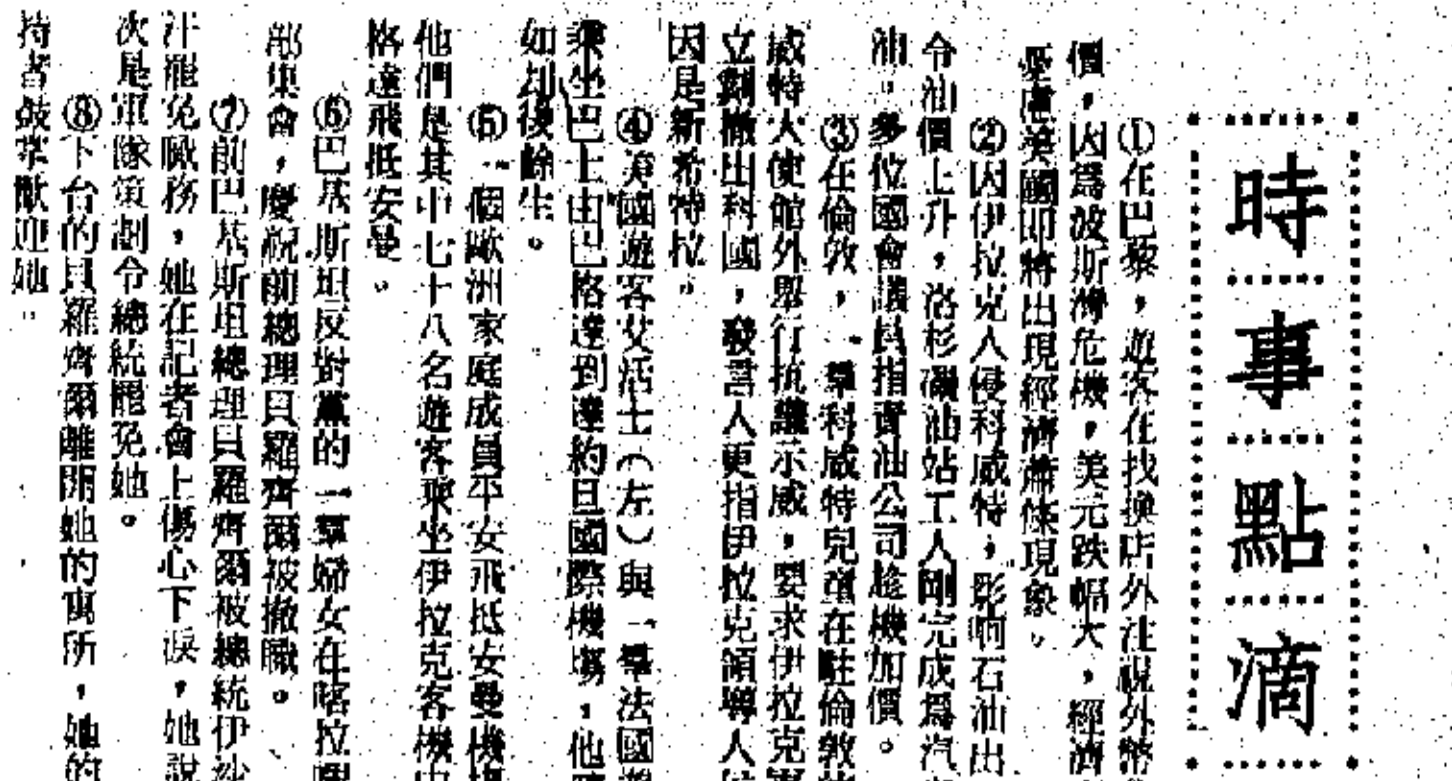 時事點滴
①在巴黎，遊客在找換店外注視外幣
價，因為波斯灣危機，美元跌幅大，經濟
憂慮美國即將出現經濟蕭條現象。
②因伊拉克入侵科威特，影响石油出
令油價上升，洛杉磯油站工人剛完成爲汽
油。多位國會議員指責油公司趁機加價。
③在倫敦，一羣科威特兒童在駐倫敦
威特大使館外舉行抗議示威，要求伊拉克軍
立刻撤出科國，發言人更指伊拉克領導人
因是新希特拉。
④美國遊客艾活士（左）與一羣法國遊
乘坐巴士由巴格達到達約旦國際機場，他
如刦後餘生。
⑤一個歐洲家庭成員平安飛抵安曼機場
他們是其中七十八名遊客乘坐伊拉克客機由
格達飛抵安曼。
⑥巴基斯坦反對黨的一羣婦女在喀拉
部集會，慶祝前總理貝羅齊爾被撤職。
⑦前巴基斯坦總理貝羅齊爾被總統伊沙
汗罷免職務，她在記者會上傷心下淚，她說
次是軍隊策劃令總統罷免她。
⑧下台的貝羅齊爾離開她的寓所，她的
持者鼓掌歡迎她。